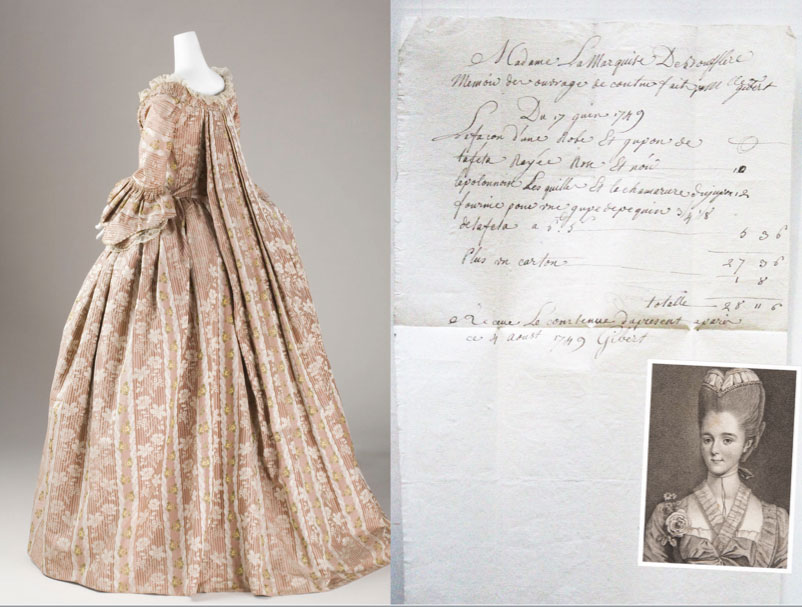 Madame La Marquise De
Memoir des ouvrage de couture fait par Gibert
Du 17 guin 1749
La façon d'une Robe Et gupon de
tafeta Rayée Et 10
lapolonnoise Les quille Et le chamarure dugupon 12
fournie pour une gupe depequin 3/4 1/8
de tafeta a 5 5 3 6
27 3 6
Plus un carton 1 8
totelle 28 11 6
Recue Le contenue dapresent a paris
ce 4 aoust 1749 Gibert